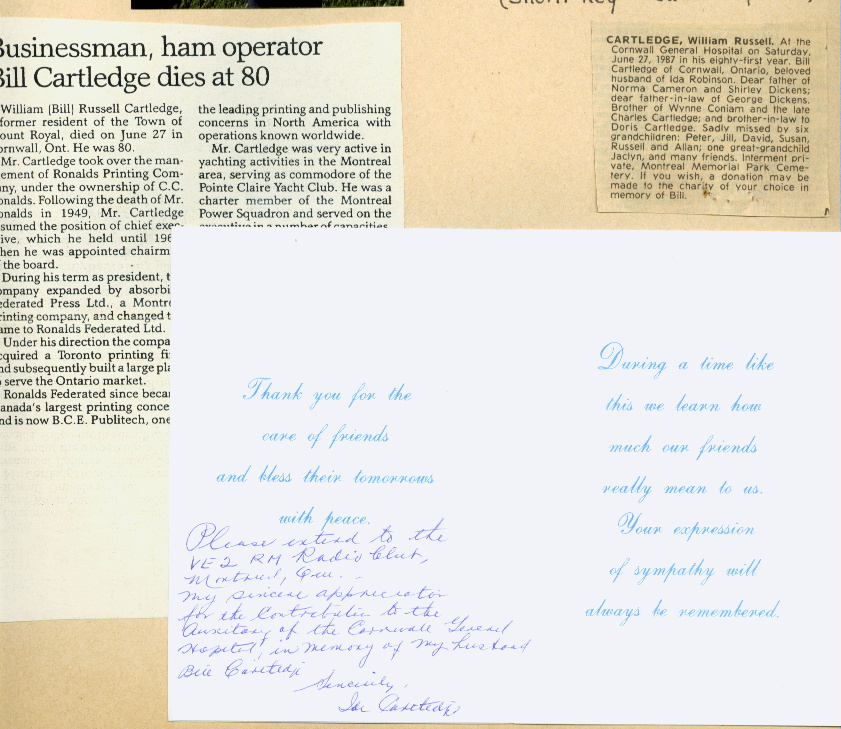 Businessman, ham operator
Bill Cartledge dies at 80
William (Bill) Russell Cartledge,
former resident of the Town of
ount Royal, died on June 27 in
ornwall, Ont. He was 80.
Mr. Cartledge took over the man-
ement of Ronalds Printing Com-
any, under the ownership of C.C.
onalds. Following the death of Mr.
onalds in 1949, Mr. Cartledge
sumed the position of chief exec-
ive, which he held until 196
hen he was appointed chairm
the board.
During his term as president, t
ompany expanded by absorbi
ederated Press Ltd., a Montre
rinting company, and changed t
ame to Ronalds Federated Ltd.
Under his direction the compa
cquired a Toronto printing fi
nd subsequently built a large pla
serve the Ontario market.
Ronalds Federated since becar
anada's largest printing conce
nd is now B.C.E. Publitech, one
the leading printing and publishing
concerns in North America with
operations known worldwide.
Mr. Cartledge was very active in
yachting activities in the Montreal
area, serving as commodore of the
Pointe Claire Yacht Club. He was a
charter member of the Montreal
Power Squadron and served on the
executive in a number of capacities
CARTLEDGE, William Russell. At the
Cornwall General Hospital on Saturday,
June 27, 1987 in his eighty-first year. Bill
Cartledge of Cornwall, Ontario, beloved
husband of Ida Robinson. Dear father of
Norma Cameron and Shirley Dickens;
dear father-in-law of George Dickens.
Brother of Wynne Coniam and the late
Charles Cartledge; and brother-in-law to
Doris Cartledge. Sadly missed by six
grandchildren: Peter, Jill, David, Susan,
Russell and Allan; one great-grandchild
Jaclyn, and many friends. Interment pri-
vate, Montreal Memorial Park Ceme-
tery. If you wish, a donation may be
made to the charity of your choice in
memory of Bill.
Thank you for the
care of friends
and bless their tomorrows
with peace.
Please extend to the
VE2 RM Radio Club,
Montreal, Que.
my sincere appreciation
for the Contribution to the
Auxiliary of the Cornwall General
Hospital, in memory of my husband
Bill Cartledge
Sincerely,
Ida Cartledge
During a time like
this we learn how
much our friends
really mean to us.
Your expression
of sympathy will
always be remembered.